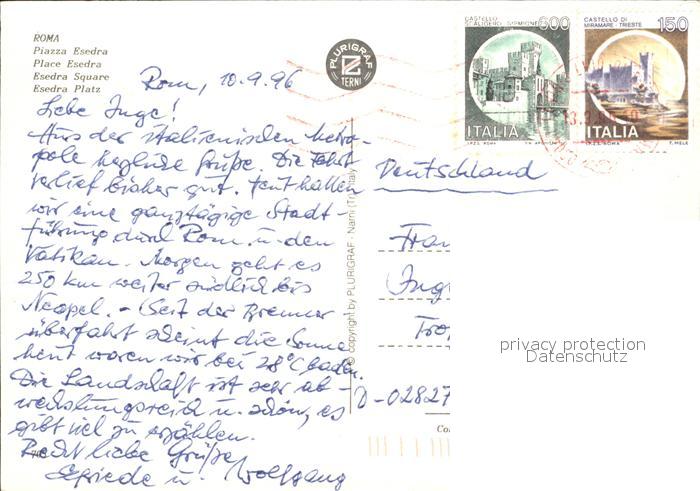 ROMA
Piazza Esedra
Place Esedra
Esedra Square
Esedra Platz
Rom, 10.9.96
Liebe Inge!
Aus der italienischen Metro-
pole herzliche Grüße. Die Fahrt
verlief bisher gut. Heut hatten
wir eine ganztägige Stadt-
führung durch Rom u. den
Vatikan. Morgen geht es
250 km weiter südlich bis
Neapel. - Seit der Brenner
überfahrt scheint die Sonne
heut waren wir bei 28°C baden.
Die Landschaft ist sehr ab-
wechslungsreich u. schön, es
gibt viel zu erzählen.
Recht liebe Grüße
u. Wolfgang
PLURIGRAF
TERNI
© copyright by PLURIGRAF - Narni
CASTELLO
SCALIGERO SIRMIONE
600
ITALIA
CASTELLO DI
MIRAMARE - TRIESTE
150
ITALIA
T. MELE
Deutschland
Frau
Ing
Tro
D-02827
privacy protection
Datenschutz